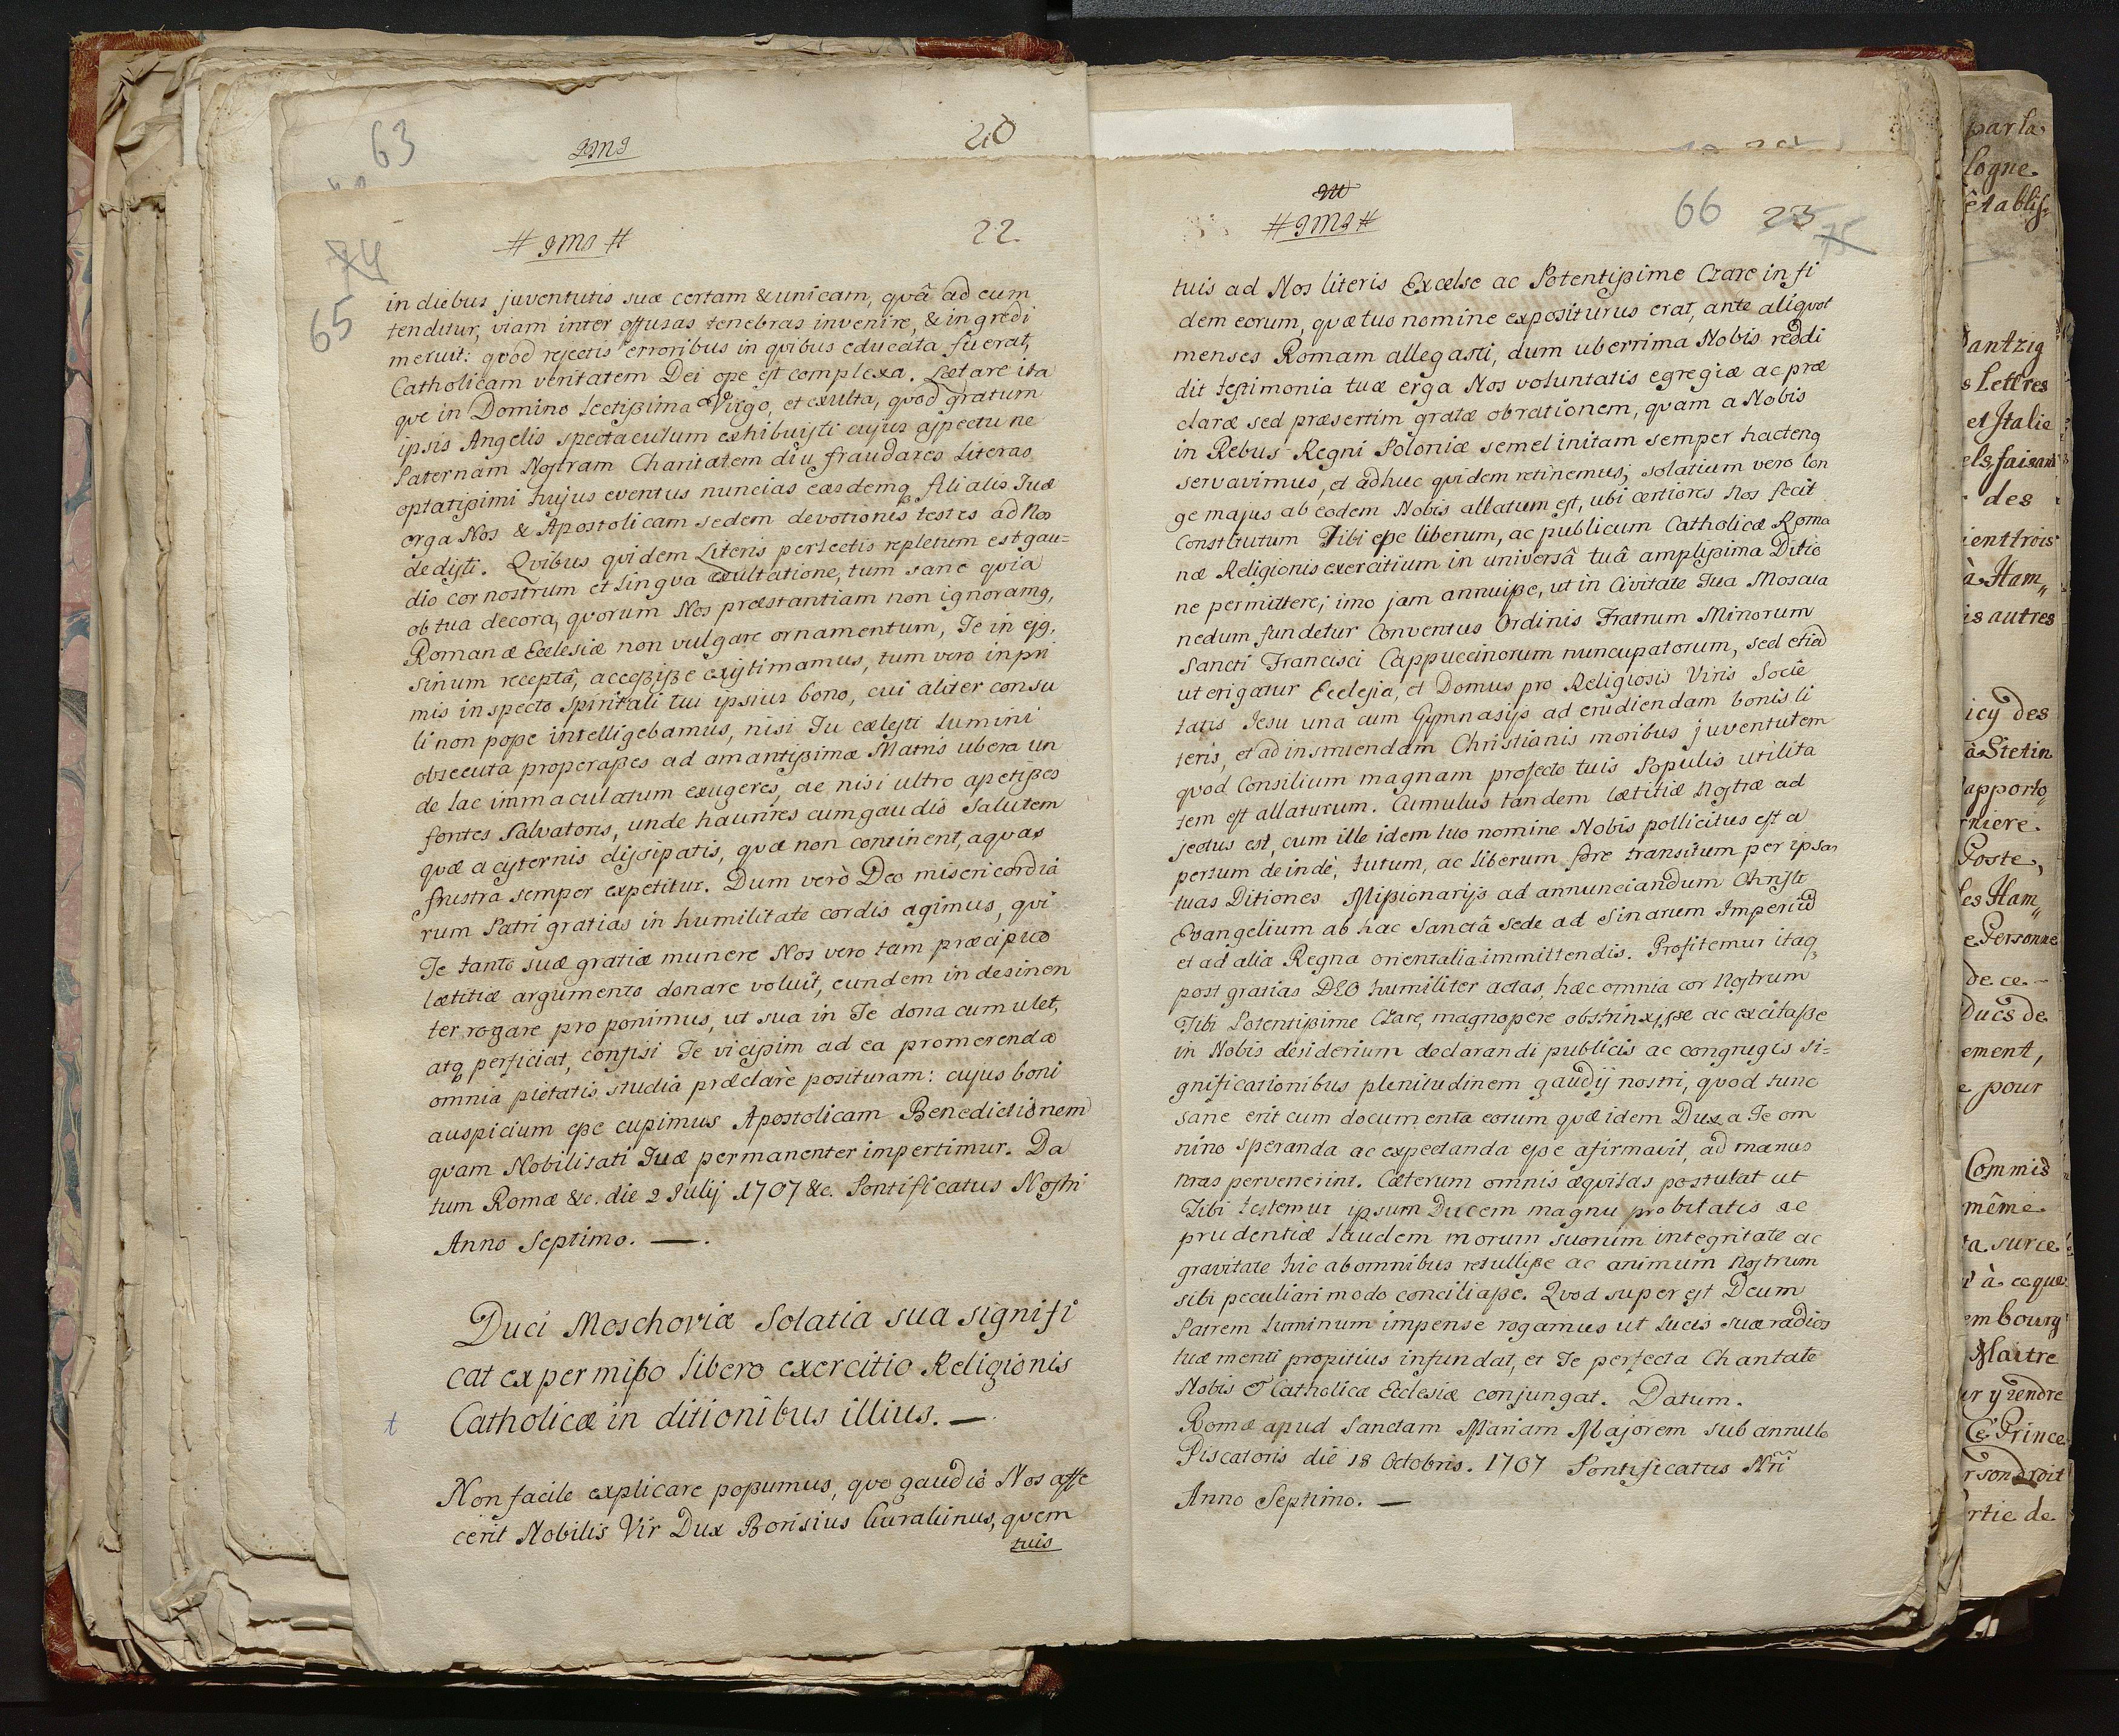 63
JMJ
20
# JMJ #
22
74
65
in diebus juventutis suæ certam & unicam, qvâ ad eum
tenditur, viam inter offusas tenebras invenire, & ingredi
meruit: qvod rejectis erroribus in qvibus educata fuerat,
Catholicam veritatem Dei ope est complexa. Lætare ita
qve in Domino lectißima Virgo, et exulta, qvod gratum
ipsis Angelis spectaculum exhibuisti cujus aspectu ne
Paternam Nostram Charitatem diu fraudares Literas
optatißimi hujus eventus nuncias easdemq filialis Tuæ
erga Nos & Apostolicam sedem devotionis testes ad Nos
dedisti. Qvibus qvidem Literis perlectis repletum est gau=
dio cor nostrum et lingva exultatione, tum sane qvia
ob tua decora, qvorum Nos præstantiam non ignoramq,
Romanæ Ecclesiæ non vulgare ornamentum, Te in ejq,
sinum receptâ, acceßiße existimamus, tum vero in pri
mis inspecto spiritali tui ipsius bono, cui aliter consu
li non poße intelligebamus, nisi Tu cælesti lumini
obsecuta properaßes ad amantißimæ Matris ubera un
de lac immaculatum exugeres, ac nisi ultro apetißes
fontes Salvatoris, unde haurires cum gaudio Salutem
qvæ a cysternis dissipatis, qvæ non continent, aquas
frustra semper expetitur. Dum verò Deo misericordia
rum Patri gratias in humilitate cordis agimus, qvi
Te tanto suæ gratiæ munere Nos vero tam præcipuo
lætitiæ argumento donare voluit, eundem in desinen
ter rogare proponimus, ut sua in Te dona cumulet,
atq perficiat, confisi Te vicißim ad ea promerenda
omnia pietatis studia præclarè posituram: cujus boni
auspicium eße cupimus Apostolicam Benedictionem
qvam Nobilitati Tuæ permanenter impertimur. Da
tum Romæ &c. die 2 Julij 1707 &c. Pontificatus Nostri
Anno Septimo. —.
Duci Moschoviæ Solatia sua signifi
cat ex permißo libero exercitio Religionis
Catholicæ in ditionibus illius. —.
t
Non facile explicare poßumus, qvo gaudio Nos affe
cerit Nobilis Vir Dux Borisius Curakinus, qvem
tuis
# JMJ #
66
23
75
tuis ad Nos literis Excelse ac Potentißime Czare in fi
dem eorum, qvæ tuo nomine expositurus erat, ante aliqvot
menses Romam allegasti, dum uberrima Nobis reddi
dit testimonia tuæ erga Nos voluntatis egregiæ ac præ
claræ sed præsertim gratæ ob rationem, qvam a Nobis
in Rebus Regni Poloniæ semel initam semper hactenq
servavimus, et adhuc qvidem retinemus; solatium vero lon
ge majus ab eodem Nobis allatum est, ubi certiores Nos fecit
Constitutum Tibi eße liberum, ac publicum Catholicæ Roma
næ Religionis exercitium in universâ tuâ amplißima Ditio
ne permittere; imo jam annuiße, ut in Civitate Tua Moscua
nedum fundetur Conventus Ordinis Fratrum Minorum
Sancti Francisci Cappuccinorum nuncupatorum, sed etiā
ut erigatur Ecclesia, et Domus pro Religiosis Viris Socie
tatis Jesu una cum Gymnasijs ad erudiendam bonis li
teris, et ad instruendam Christianis moribus juventutem
qvod Consilium magnam profecto tuis Populis utilita
tem est allaturum. Cumulus tandem lætitiæ Nostræ ad
jectus est, cum ille idem tuo nomine Nobis pollicitus est a
pertum deinde, tutum, ac liberum fore transitum per ipsas
tuas Ditiones Mißionarijs ad annunciandum Christi
Evangelium ab hac Sanctâ Sede ad Sinarum Imperiū
et ad alia Regna orientalia immittendis. Profitemur itaq,
post gratias DEO humiliter actas, hæc omnia cor Nostrum
Tibi Potentißime Czare, magnopere obstrinxiße ac excitaße
in Nobis desiderium declarandi publicis ac congrugis si=
gnificationibus plenitudinem gaudij nostri, qvod tunc
sane erit cum documenta eorum qvæ idem Dux a Te om
nino speranda ac expectanda eße afirmavit, ad manus
nras pervenerint. Cæterum omnis æqvitas postulat ut
Tibi testemur ipsum Ducem magnu probitatis ac
prudentiæ laudem morum suorum integritate ac
gravitate hic ab omnibus retulliße ac animum Nostrum
sibi peculiari modo conciliaße. Qvod super est Deum
Patrem luminum impense rogamus ut lucis suæ radios
tuæ menti propitius infundat, et Te perfecta Charitate
Nobis & Catholicæ Ecclesiæ conjungat. Datum.
Romæ apud Sanctam Mariam Majorem sub annulo
Piscatoris die 18 Octobris. 1707 Pontificatus Nr̃i
Anno Septimo. —
par la
logne.
établis-
Dantzig
s Lettres
et Italie
els, faisant
des
ient trois
à Ham„
is autres
icy des
à Stetin
apporto„
rniere.
Poste,
les Ham„
e Personne
de ce-
Ducs de
ement,
e pour
Commis
même
ta surce
à ce que
embourg
Maitre
ur y rendre
Ce Prince
r son droit
rtie de